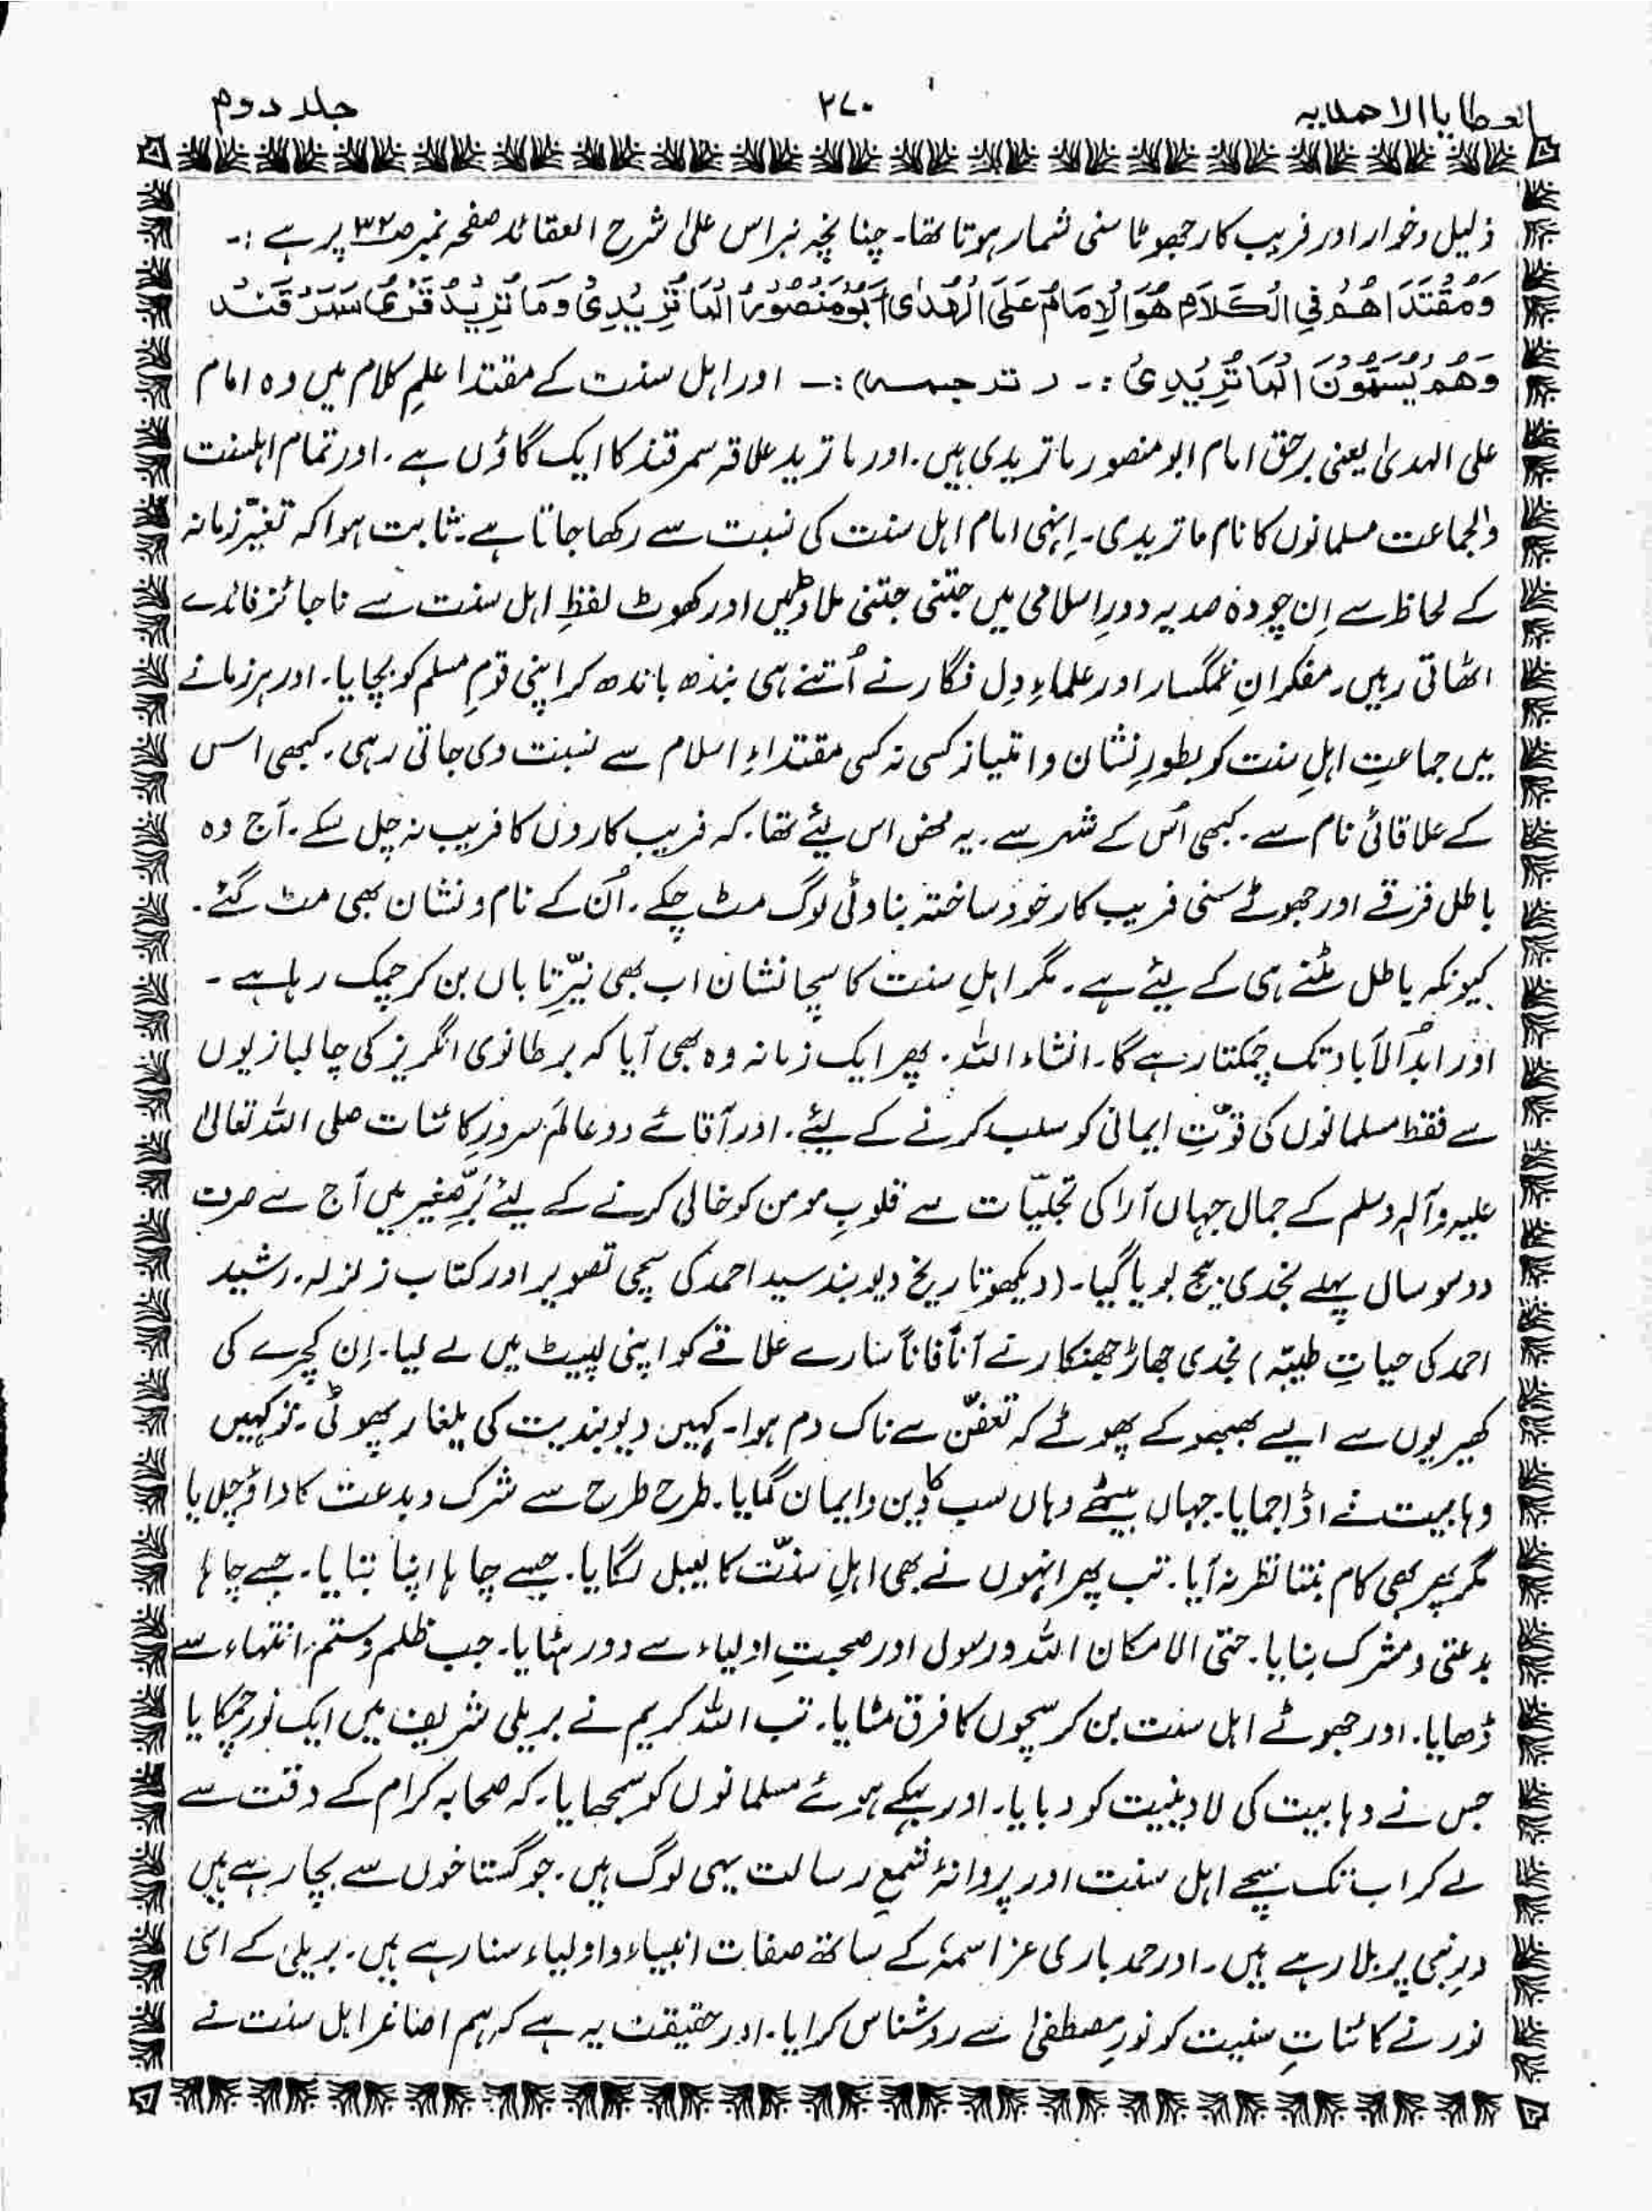 العطایا الاحمدیہ ۲۷۰ جلد دوم
ذلیل وخوار اور فریب کار جھوٹا سنی شمار ہوتا تھا۔ چنانچہ نبراس علیٰ شرح العقائد صفحہ نمبر صـ۳۲ پر ہے :۔
وَمُقْتَدَاهُمْ فِي الْكَلَامِ هُوَ الْإِمَامُ عَلَى الْهُدَىٰ أَبُوْمَنْصُوْرُ الْمَاتُرِيْدِيْ وَمَاتُرِيْدُ قَرْىُ سَمَرْقَنْد
وَهُمْ يُسَمُّوْنَ الْمَاتُرِيْدِىْ :۔ (ترجمہ) :۔ اور اہل سنت کے مقتدا علمِ کلام میں وہ امام
علی الہدیٰ یعنی برحق امام ابو منصور ماتریدی ہیں۔ اور ماترید علاقہ سمرقند کا ایک گاؤں ہے۔ اور تمام اہلسنت
والجماعت مسلمانوں کا نام ماتریدی۔ اِنہی امام اہل سنت کی نسبت سے رکھا جاتا ہے۔ ثابت ہوا کہ تغیّرِ زمانہ
کے لحاظ سے اِن چودہ صدیہ دورِ اسلامی میں جتنی جتنی ملاوٹیں اور کھوٹ لفظِ اہل سنت سے ناجائز فائدے
اٹھاتی رہیں۔ مفکرانِ غمگسار اور علماءِ دِل فگار نے اُتنے ہی بندھ باندھ کر اپنی قومِ مسلم کو بچایا۔ اور ہر زمانے
میں جماعتِ اہلِ سنت کو بطورِ نشان و امتیاز کسی نہ کسی مقتداءِ اسلام سے نسبت دی جاتی رہی۔ کبھی اسس
کے علاقائی نام سے۔ کبھی اُس کے شہر سے۔ یہ محض اس لیئے تھا۔ کہ فریب کاروں کا فریب نہ چل سکے۔ آج وہ
باطل فرقے اور جھوٹے سنی فریب کار خود ساختہ بناوٹی لوگ مٹ چکے۔ اُن کے نام و نشان بھی مٹ گئے۔
کیونکہ باطل مٹنے ہی کے لیئے ہے۔ مگر اہلِ سنت کا سچا نشان اب بھی نیّرِ تاباں بن کر چمک رہا ہے۔
اور ابدُالآباد تک چمکتا رہے گا۔ انشاء اللہ۔ پھر ایک زمانہ وہ بھی آیا کہ برطانوی انگریز کی چالبازیوں
سے فقط مسلمانوں کی قوّتِ ایمانی کو سلب کرنے کے لیئے۔ اور آقائے دو عالم سرورِ کائنات صلی اللہ تعالیٰ
علیہ وآلہٖ وسلم کے جمال جہاں آرا کی تجلیّات سے قلوبِ مومن کو خالی کرنے کے لیئے بَرِّصغیر میں آج سے صرف
دو سو سال پہلے نجدی بیج بویا گیا۔ (دیکھو تاریخ دیوبند سید احمد کی سچی تصویر اور کتاب زلزلہ۔ رشید
احمد کی حیاتِ طیبّہ) نجدی جھاڑ جھنکار نے آناً فاناً سارے علاقے کو اپنی لپیٹ میں لے لیا۔ اِن کچرے کی
کھیریوں سے ایسے بھبھوکے پھوٹے کہ تعفّن سے ناک دم ہوا۔ کہیں دیوبندیت کی یلغار پھوٹی۔ تو کہیں
وہابیت نے اڈّا جمایا۔ جہاں بیٹھے وہاں سب کا دِین و ایمان گمایا۔ طرح طرح سے شرک و بدعت کا داؤ چلایا
مگر پھر بھی کام بنتا نظر نہ آیا۔ تب پھر انہوں نے بھی اہلِ سنّت کا لیبل لگایا۔ جسے چاہا اپنا بنایا۔ جسے چاہا
بدعتی و مشرک بنایا۔ حتیٰ الامکان اللہ و رسول اور صحبتِ اولیاء سے دور ہٹایا۔ جب ظلم و ستم انتہاء سے
ڈھایا۔ اور جھوٹے اہل سنت بن کر سچوں کا فرق مٹایا۔ تب اللہ کریم نے بریلی شریف میں ایک نور چمکایا
جس نے وہابیت کی لادینیت کو دبایا۔ اور بہکے ہوئے مسلمانوں کو سمجھایا۔ کہ صحابہ کرام کے وقت سے
لے کر اب تک سچے اہل سنت اور پروانۂ شمعِ رسالت یہی لوگ ہیں۔ جو گستاخوں سے بچا رہے ہیں
درِ نبی پر بلا رہے ہیں۔ اور حمد باری عز اسمہٗ کے ساتھ صفات انبیاء و اولیاء سنا رہے ہیں۔ بریلی کے اسی
نور نے کائناتِ سنیت کو نورِ مصطفیٰ سے روشناس کرایا۔ اور حقیقت یہ ہے کہ ہم اصاغر اہل سنت نے